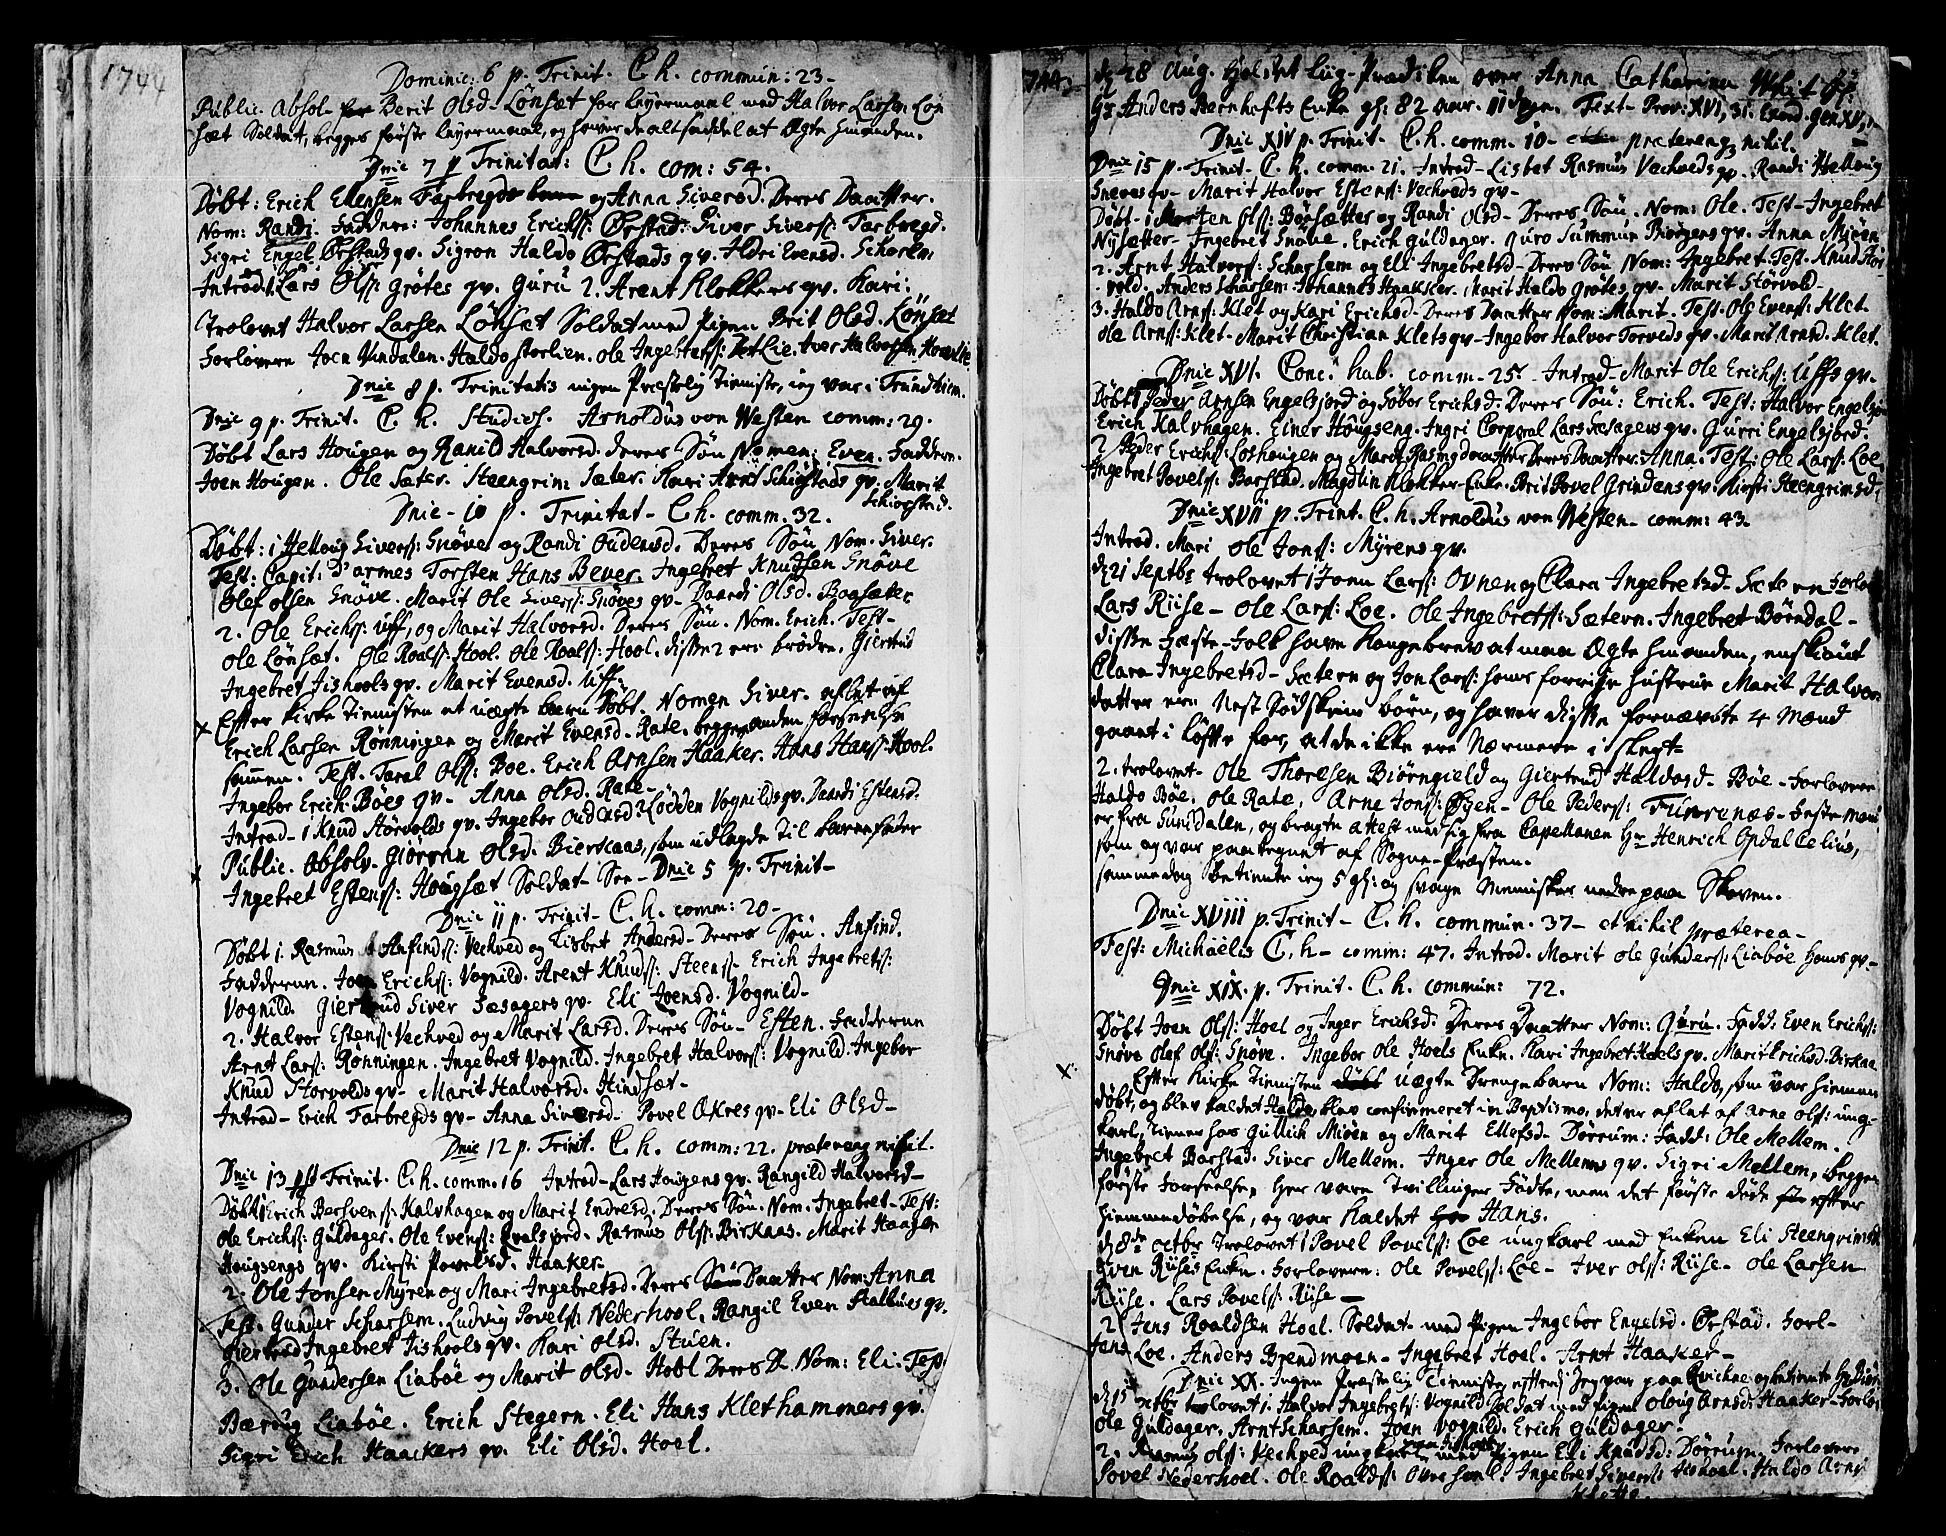 1744
Dominic: 6 p. Trinit. C. h. commun: 23-
Public. Absol. Berit Olsd. Lønsæt for leyermaal med Halvor Larsen Løn
sæt Soldat, begges første leyermaal, og haver de alt faddel at Ægte hinanden.
Dnic 7 p Trinitat: C. h. com: 54.
Døbt: Erich Ellensen Farbregds og Anna Siversd. Deres Daatter.
Nom: Randi. Faddere: Johannes Erichss: Ørstad: Siver Siverss: Farbregd.
Sigri Engel Ørstads qv. Sigron Haldo Ørstads qv. Aldri Evensd. Scharem
Introd. 1. Lars Olss: Grøtes qv. Guru 2. Arent Klokkers qv. Kari:
Trolovet Halvor Larsen Lønsæt Soldat med Pigen Brit Olsd. Lønsæt
Forlovere Joen Vindalen. Haldo Storlien. Ole Ingebretss: Lie. Iver Halvorsen
Dnic 8 p. Trinitatis ingen Præstelig Tienniste, ieg var i Trundhiem.
Dnic 9 p. Trinit. C. h. Studios. Arnoldus von Westen comm: 29.
Døbt Lars Hougen og Ranild Halvorsd. deres Søn Nomen: Even. Faddere.
Joen Hougen. Ole Sæter. Steengrim Sæter. Kari Arnt Schiøstads qv. Marit
Schiøstad.
Dnic - 10 p. Trinitat - C. h. comm. 32.
Døbt: 1 Helloug Siverss: Snøve og Randi Oudensd. Deres Søn Nom. Siver.
Test: Capit: d'armes Torsten Hans Bever. Ingebret Knudsen Snøve
Olef Olsen Snøve. Marit Ole Siverss: Snøves qv. Baardi Olsd. Boasæter
2. Ole Erichss: Uff, og Marit Halvorsd. Deres Søn. Nom. Erich. Test-
Ole Lønsæt. Ole Roalss: Hool. Ole Roalss: Hool. disse 2 ere brødre. Giertrud
Ingebret Fishools qv. Marit Evensd. Uff.
x Efter Kirke Tiennisten et uægte barn Døbt. Nomen Siver. aflet af
Erich Larsen Rønningen og Marit Evensd. Rate. begges anden forseelse
sammen. Test. Taral Olss: Boe. Erich Arnsen Haaker. Hans Hanss: Hool.
Ingebor Erich Bøes qv. Anna Olsd. Rate-
Introd - 1 Knud Hørvolds qv. Ingebor Oudensd: 2 Lødden Vognilds qv. Baardi Estensd.
x Public. Absolv. Giøran Olsd. Bierskaas, som udlagde til barnefader
Ingebret Estenss: Hougsæt Soldat - See - Dnic 5 p. Trinit-
Dnic 11 p. Trinit - C. h. comm: 20-
Døbt 1. Rasmus Anfindss: Vechved og Lisbet Andersd - Deres Søn. Anfind.
Fadderne. Joen Erichss: Vognild. Arent Knudss: Steen - Erich Ingebretss:
Vognild. Giertrud Siver Sæsagers qv. Eli Joensd. Vognild-
2. Halvor Estenss: Vechved og Marit Larsd. Deres Søn - Esten. Fadderne
Arnt Larss: Rønningen. Ingebret Vognild. Ingebret Halvorss: Vognild. Ingebor
Knud Storvolds qv - Marit Halvorsd. Hindsæt-
Introd - Erich Farbregds qv - Anna Siversd - Povel Ækres qv - Eli Olsd-
Dnic 12 p. Trinit. C. h. comm: 22. præterea nihil.
Dnic 13 pst - Trinit. C. h. comm. 16 Introd - Lars Hougens qv. Rangild Halvorsd-
Døbt 1 Erich Bersvenss: Kalvhagen og Marit Endresd. Deres Søn. Nom. Ingebret - Test:
Ole Erichss: Guldager. Ole Evenss: Qvalsiord. Rasmus Olss: Birkaas. Marit Haagen
Hougsengs qv. Kirsti Povelsd. Haaker
2. Ole Jonsen Myren og Mari Ingebretsd. Deres Søn Daatter Nom: Anna
Test. Gunder Scharsem. Ludvig Povelss: Nederhool. Rangil Even Stalbues qv.
Giertrud Ingebret Fishools qv. Kari Olsd. Stuen.
3. Ole Gundersen Liabøe og Marit Olsd. Hoel Deres D. Nom: Eli. Test.
Bærug Liabøe. Erich Stegern. Eli Hans Klethammers qv.
Sigri Erich Haackers qv. Eli Olsd. Hoel.
1744
d. 28 Aug. Holdet Liig-Prædiken over Anna Catharina
Hr. Anders Bernhofts Enke gl: 82 aar. 11 dage. Text - Prov: XVI, 31. Exord. Gen XV,
Dnic XIV p. Trinit. C. h. comm. 10 - præterea nihil.
Dnic 15 p - Trinit - C. h. comm. 21. Introd - Lisbet Rasmus Vechveds qv. Randi Helloug
Snøves qv - Marit Halvor Estenss: Vechveds qv-
Døbt - 1 Morten Olss: Bøesætter og Randi Olsd - Deres Søn. Nom: Ole. Test - Ingebret
Nysætter - Ingebret Snøve. Erich Guldager. Guro Gummun Biørgens qv. Anna Miøen
2. Arnt Halvorss: Scharsem og Eli Ingebretsd - Deres Søn Nom: Ingebret. Test. Knud Stor
vold. Anders Scharsem. Johannes Haakker. Marit Haldo Grøtes qv. Marit Storvold-
3. Haldo Arnss: Klet og Kari Erichsd - Deres Daatter Nom: Marit. Test. Ole Evenss: Klet.
Ole Arnss: Klet. Marit Christian Klets qv - Ingebor Halvor Torveds qv. Marit Arnsd. Klet.
Dnic XVI. Conc. hab. comm - 25. Introd - Marit Ole Erichss: Uffs qv.
Døbt 1 Peder Arnsen Engelsjord og Gøbor Erichsd: Deres Søn: Erich. Test: Halvor Engelsjo
Erich Kalvhagen. Einer Hougseng. Ingri Corporal Lars Sæsagers qv. Gurri Engelsjord.
2 Peder Erichss: Loshougen og Marit Rasmusdaatter Deres Daatter. Anna. Test: Ole Larss: Loe.
Ingebret Povelss: Barstad. Magdlin Klokker-Enke. Brit Povel Grindens qv. Kirsti Steengrimsd.
Dnic XVII p. Trinit. C. h. Arnoldus von Westen - comm: 43-
Introd. Mari Ole Jonss: Myrens qv.
d. 21 Septbr trolovet 1 Jonn Larss: Ovnen og Clara Ingebretsd. Sæteren Forlov
Lars Riise - Ole Larss: Loe. Ole Ingebretss: Sætern. Ingebret Børndal-
disse Fæste-Folk have Kongebrev at maa Ægte hinanden, enskiønt
Clara Ingebretsd - Sætern og Jon Larss: hans forrige Hustrue Marit Halvor
datter ere Nest Sødskene børn, og haver disse fornævnte 4 Mænd
gaaet i løfte for, at de ikke ere Nærmere i Slegt-
2. trolovet - Ole Thoresen Biørngield og Giertrud Haldosd - Bøe - Forlovere
Haldo Bøe. Ole Rate, Arne Jonss: Øyen - Ole Pederss: Furrenæs - Festemand
er fra Sundalen, og bragte attest med sig fra Capellanen Hr Henrich Opdal Celius,
som og var paategnet af Sogne-Præsten.
samme dag betiente ieg 5 gl: og svage Mennisker nedre paa Skoven.
Dnic XVIII p. Trinit - C. h. commun. 37 - et nihil præterea-
Fest: Michaëlis C. h - comm: 47. Introd. Marit Ole Gunderss: Liabøe hans qv-
Dnic XIX. p. Trinit. C. h. commun: 72.
Døbt Joen Olss: Hoel og Inger Erichsd. Deres Daatter Nom: Guru. Fadd: Even Erichss:
Snøve Olef Olss: Snøve. Ingebor Ole Hoels Enke. Kari Ingebret Hoels qv. Marit Erichsd. Birkaa
x Efter Kirke Tiennisten døbt uægte Drengebarn Nom: Haldo, som var hiemme
døbt, og blev kaldet Haldo, blev confirmeret in Baptismo, det er aflet af Arne Olss: ung-
karl, tiener hos Gullich Miøen og Marit Ellefsd. Dørrum: Fadd: Ole Mellem.
Ingebret Barstad. Siver Mellem. Inger Ole Mellems qv. Sigri Mellem, begges
første Forseelse, her vare Tvillinger Fødte, men det første døde efter
hiemmedøbelse, og var kaldet Hans.
d. 8de Octbr Trolovet 1 Povel Povelss: Loe ungkarl med Enken Eli Steengrimsd
Even Riises Enke. Forlovere: Ole Povelss: Loe - Iver Olss: Riise - Ole Larsen
Riise. Lars Povelss: Riise-
2 Jens Roaldsen Hoel. Soldat - med Pigen Ingebor Engelsd. Ørstad. Forl-
Jens Loe. Anders Brendmoen - Ingebret Hoel. Arnt Haaker-
Dnic XX. Ingen Præstelig Tienniste, efterdi Jeg var paa
d. 15 Octbr trolovet 1. Halvor Ingebretss: Vognild Soldat med Pigen Oloug Arnsd: Haaker - Forlo
Ole Guldager. Arnt Scharsem. Joen Vognild. Erich Guldager.
2. Rasmus Olss: Vechved ungkarl med Pigen Eli Knudsd: Dørrum. Forlovere
Povel Nederhoel. Ole Roaldss: Ingebret Siverss: Fishoel. Haldo Arns